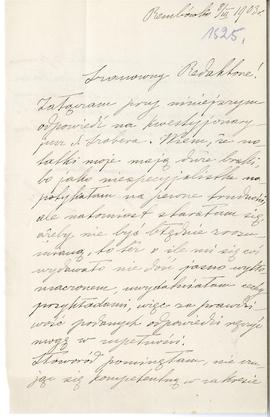 Rembówko 9/III 1903 r.
1525.
Szanowny Redaktorze!
Załączam przy niniejszym
odpowiedź na kwestyjonary-
jusz d-ra Wiem, że no-
tatki moje mają duże braki,
bo jako niespecyjalistka na-
potykałam na pewne trudności,
ale natomiast starałam się
ażeby nie być błędnie zrozu-
mianą, to też o ile mi się co
wydawało nie dość jasno wytłó-
maczonem, uwydatniałam
przykładami, więc za prawdzi-
wość podanych odpowiedzi ręczyć
mogę w zupełności.
Słoworód pominęłam, nie czu-
jąc się kompetentną w zakresie